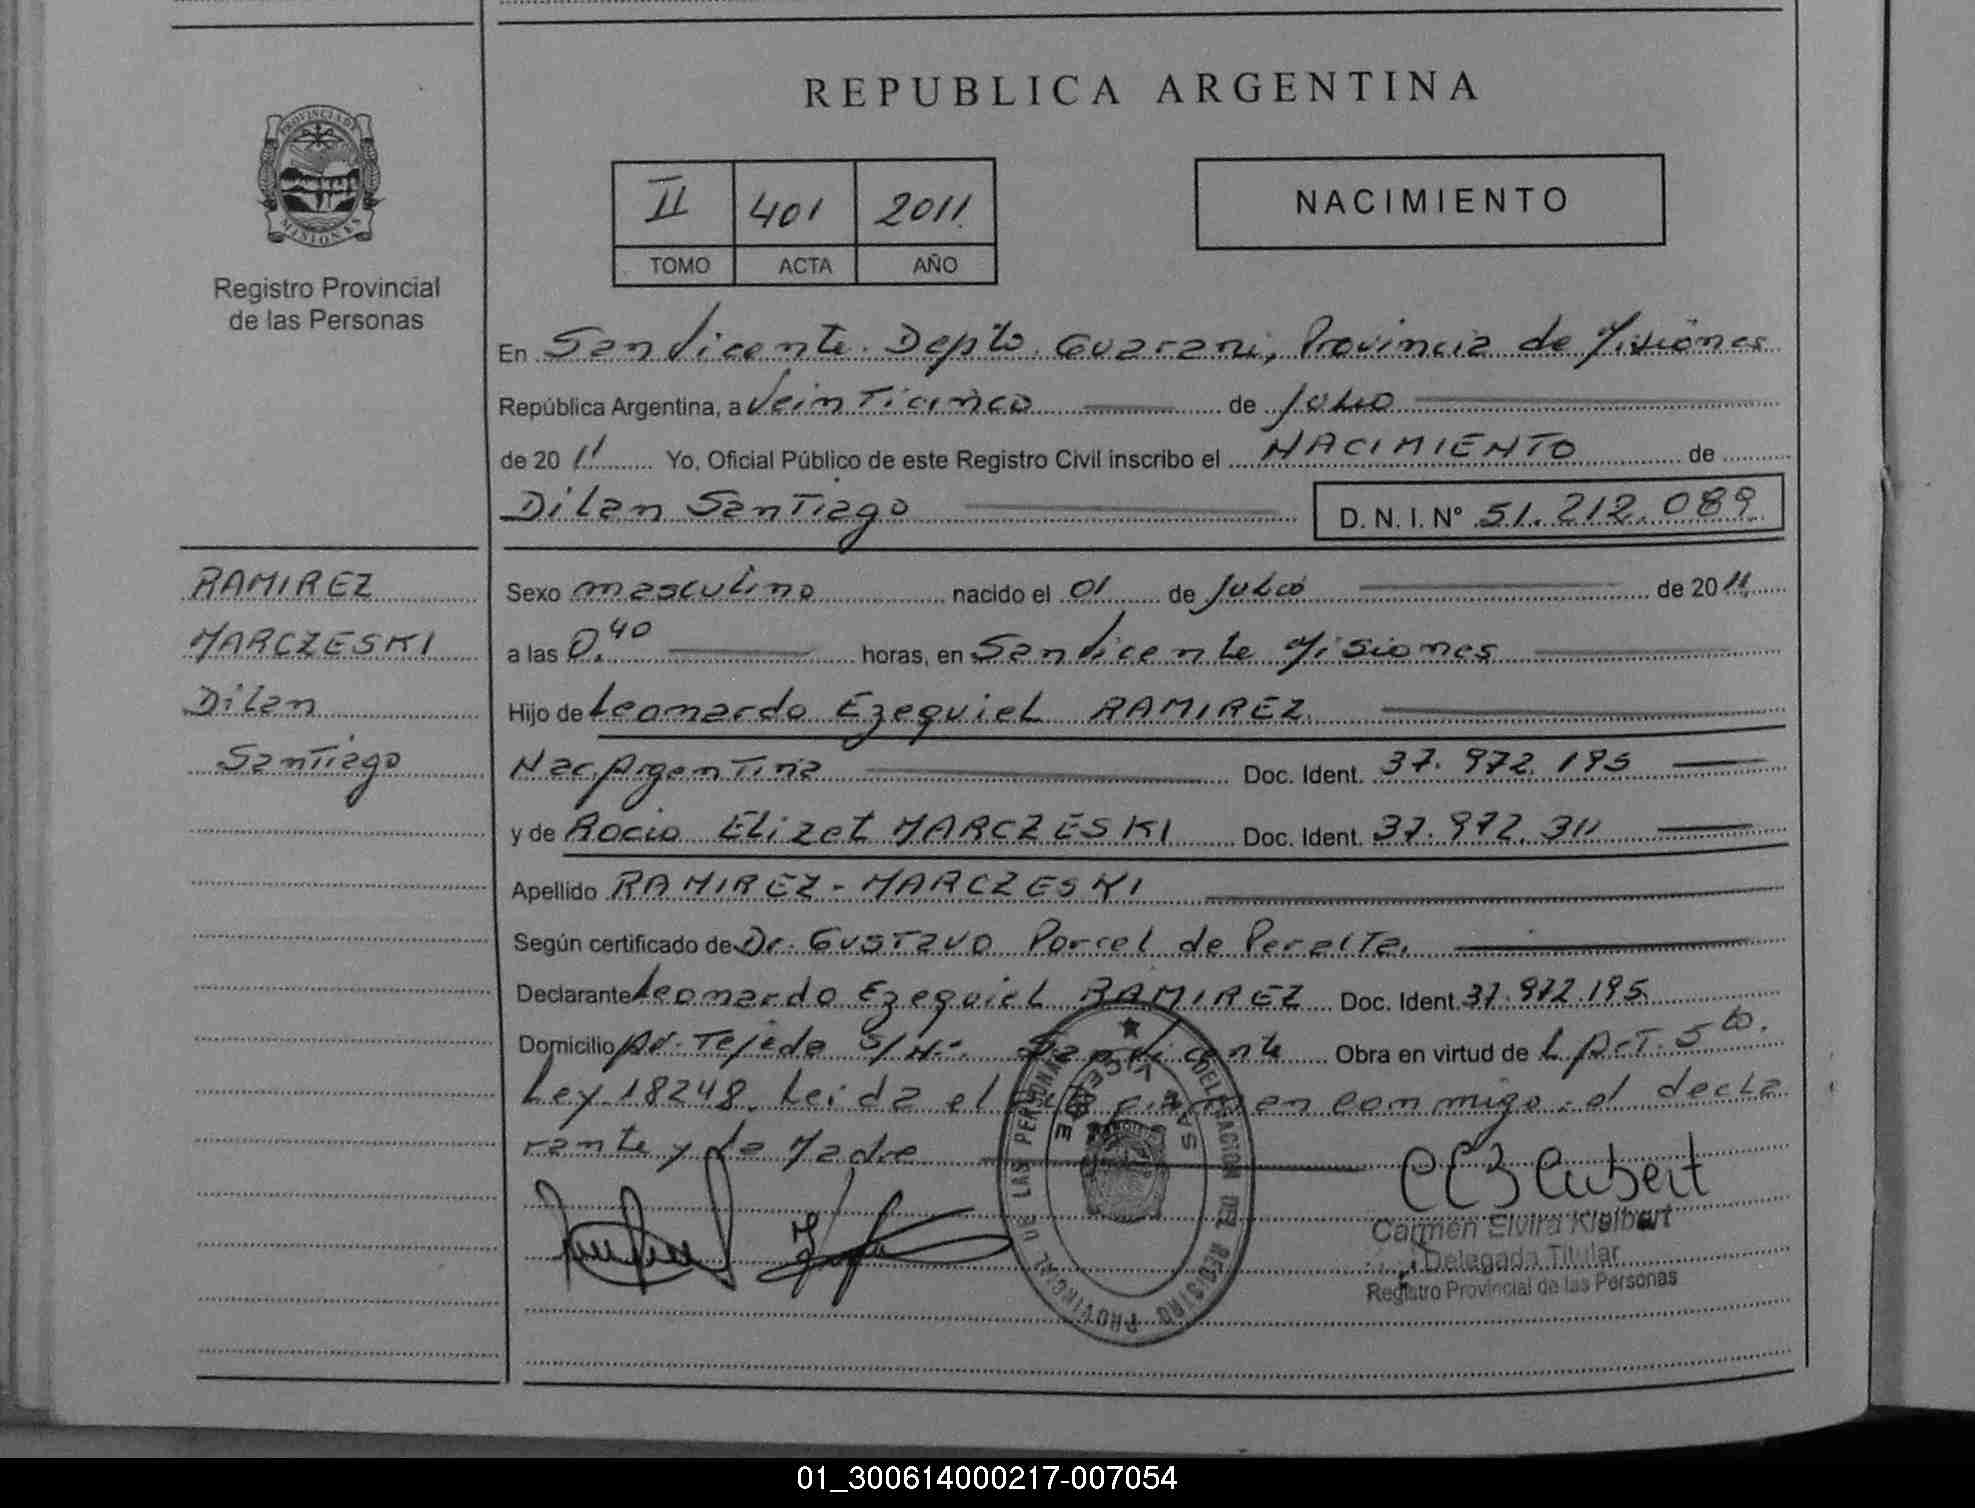 REPUBLICA ARGENTINA
PROVINCIA DE
MISIONES
Registro Provincial
de las Personas
II 401 2011
TOMO ACTA AÑO
NACIMIENTO
En San Vicente. Depto. Guarani, Provincia de Misiones
República Argentina, a Veinticinco de Julio
de 2011 Yo, Oficial Público de este Registro Civil inscribo el NACIMIENTO de
Dilan Santiago D. N. I. Nº 51.212.089
RAMIREZ
MARCZESKI
Dilan
Santiago
Sexo masculino nacido el 01 de Julio de 2011
a las 0.40 horas, en San Vicente Misiones
Hijo de Leonardo Ezequiel RAMIREZ
Nac. Argentina Doc. Ident. 37.972.195
y de Rocio Elizet MARCZESKI Doc. Ident. 37.972.311
Apellido RAMIREZ - MARCZESKI
Según certificado de Dr. Gustavo Porcel de Peralta.
Declarante Leonardo Ezequiel RAMIREZ Doc. Ident. 37.972.195
Domicilio Av. Tejeda S/Nº. San Vicente Obra en virtud de L Art. 5to.
Ley 18248. Leida el acta firman conmigo: el decla
rante y la Madre
DELEGACION DEL REGISTRO PROVINCIAL DE LAS PERSONAS
SAN VICENTE
Carmen Elvira Klaibert
Delegada Titular
Registro Provincial de las Personas
01_300614000217-007054